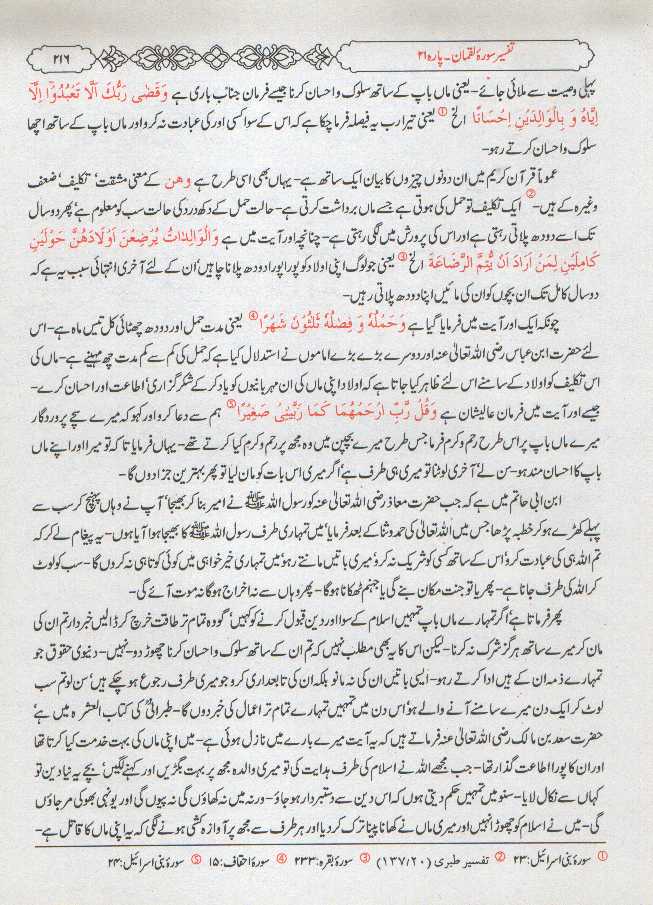 تفسیر سورۂ لقمان۔ پارہ ۲۱
۲۱۶
پہلی وصیت سے ملائی جائے۔ یعنی ماں باپ کے ساتھ سلوک و احسان کرنا جیسے فرمان جناب باری ہے وَقَضٰی رَبُّكَ اَلَّا تَعْبُدُوْٓا اِلَّآ
اِیَّاهُ وَ بِالْوَالِدَیْنِ اِحْسَانًا الخ ① یعنی تیرا رب یہ فیصلہ فرما چکا ہے کہ اس کے سوا کسی اور کی عبادت نہ کرو اور ماں باپ کے ساتھ اچھا
سلوک و احسان کرتے رہو۔
عموماً قرآن کریم میں ان دونوں چیزوں کا بیان ایک ساتھ ہے۔ یہاں بھی اسی طرح ہے وھن کے معنی مشقت‘ تکلیف‘ ضعف
وغیرہ کے ہیں۔ ② ایک تکلیف تو حمل کی ہوتی ہے جسے ماں برداشت کرتی ہے۔ حالت حمل کے دکھ درد کی حالت سب کو معلوم ہے‘ پھر دو سال
تک اسے دودھ پلاتی رہتی ہے اور اس کی پرورش میں لگی رہتی ہے۔ چنانچہ اور آیت میں ہے وَالْوَالِدَاتُ یُرْضِعْنَ اَوْلَادَهُنَّ حَوْلَیْنِ
كَامِلَیْنِ لِمَنْ اَرَادَ اَنْ یُّتِمَّ الرَّضَاعَةَ الخ ③ یعنی جو لوگ اپنی اولاد کو پورا پورا دودھ پلانا چاہیں‘ ان کے لئے آخری انتہائی سبب یہ ہے کہ
دو سال کامل تک ان بچوں کو ان کی مائیں اپنا دودھ پلاتی رہیں۔
چونکہ ایک اور آیت میں فرمایا گیا ہے وَحَمْلُهٗ وَ فِصٰلُهٗ ثَلٰثُوْنَ شَهْرًا ④ یعنی مدت حمل اور دودھ چھٹائی کل تیس ماہ ہے۔ اس
لئے حضرت ابن عباس رضی اللہ تعالیٰ عنہ اور دوسرے بڑے بڑے اماموں نے استدلال کیا ہے کہ حمل کی کم سے کم مدت چھ مہینے ہے۔ ماں کی
اس تکلیف کو اولاد کے سامنے اس لئے ظاہر کیا جاتا ہے کہ اولاد اپنی ماں کی ان مہربانیوں کو یاد کر کے شکر گزاری‘ اطاعت اور احسان کرے۔
جیسے اور آیت میں فرمان عالیشان ہے وَقُلْ رَّبِّ ارْحَمْهُمَا كَمَا رَبَّیٰنِیْ صَغِیْرًا ⑤ ہم سے دعا کرو اور کہو کہ میرے سچے پروردگار
میرے ماں باپ پر اس طرح رحم و کرم فرما جس طرح میرے بچپن میں وہ مجھ پر رحم و کرم کیا کرتے تھے۔ یہاں فرمایا تا کہ تو میرا اور اپنے ماں
باپ کا احسان مند ہو۔ سن لے‘ آخری لوٹنا تو میری ہی طرف ہے‘ اگر میری اس بات کو مان لیا تو پھر بہترین جزا دوں گا۔
ابن ابی حاتم میں ہے کہ جب حضرت معاذ رضی اللہ تعالیٰ عنہ کو رسول اللہ ﷺ نے امیر بنا کر بھیجا‘ آپ نے وہاں پہنچ کر سب سے
پہلے کھڑے ہو کر خطبہ پڑھا جس میں اللہ تعالیٰ کی حمد و ثنا کے بعد فرمایا‘ میں تمہاری طرف رسول اللہ ﷺ کا بھیجا ہوا آیا ہوں۔ یہ پیغام لے کر کہ
تم اللہ ہی کی عبادت کرو‘ اس کے ساتھ کسی کو شریک نہ کرو‘ میری باتیں مانتے رہو‘ میں تمہاری خیر خواہی میں کوئی کوتاہی نہ کروں گا۔ سب کو لوٹ
کر اللہ کی طرف جانا ہے۔ پھر یا تو جنت مکان بنے گی یا جہنم ٹھکانا ہوگا۔ پھر وہاں سے نہ اخراج ہوگا نہ موت آئے گی۔
پھر فرماتا ہے‘ اگر تمہارے ماں باپ تمہیں اسلام کے سوا اور دین قبول کرنے کو کہیں‘ گو وہ تمام تر طاقت خرچ کر ڈالیں خبردار تم ان کی
مان کر میرے ساتھ ہرگز شرک نہ کرنا۔ لیکن اس کا یہ بھی مطلب نہیں کہ تم ان کے ساتھ سلوک و احسان کرنا چھوڑ دو۔ نہیں۔ دنیوی حقوق جو
تمہارے ذمہ ان کے ہیں ادا کرتے رہو۔ ایسی باتیں ان کی نہ مانو بلکہ ان کی تابعداری کرو جو میری طرف رجوع ہو چکے ہیں‘ سن لو تم سب
لوٹ کر ایک دن میرے سامنے آنے والے ہو‘ اس دن میں تمہیں تمہارے تمام تر اعمال کی خبر دوں گا۔ طبرانیؒ کی کتاب العشرہ میں ہے‘
حضرت سعد بن مالک رضی اللہ تعالیٰ عنہ فرماتے ہیں کہ یہ آیت میرے بارے میں نازل ہوئی ہے۔ میں اپنی ماں کی بہت خدمت کیا کرتا تھا
اور ان کا پورا اطاعت گذار تھا۔ جب مجھے اللہ نے اسلام کی طرف ہدایت کی تو میری والدہ مجھ پر بہت بگڑیں اور کہنے لگیں‘ بچے یہ نیا دین تو
کہاں سے نکال لایا۔ سنو میں تمہیں حکم دیتی ہوں کہ اس دین سے دستبردار ہو جاؤ۔ ورنہ میں نہ کھاؤں گی نہ پیوں گی اور یونہی بھوکی مر جاؤں
گی۔ میں نے اسلام کو چھوڑا نہیں اور میری ماں نے کھانا پینا ترک کر دیا اور ہر طرف سے مجھ پر آوازہ کشی ہونے لگی کہ یہ اپنی ماں کا قاتل ہے۔
① سورۂ بنی اسرائیل: ۲۳ ② تفسیر طبری (۱۳۷/۲۰) ③ سورۂ بقرہ: ۲۳۳ ④ سورۂ احقاف: ۱۵ ⑤ سورۂ بنی اسرائیل: ۲۴